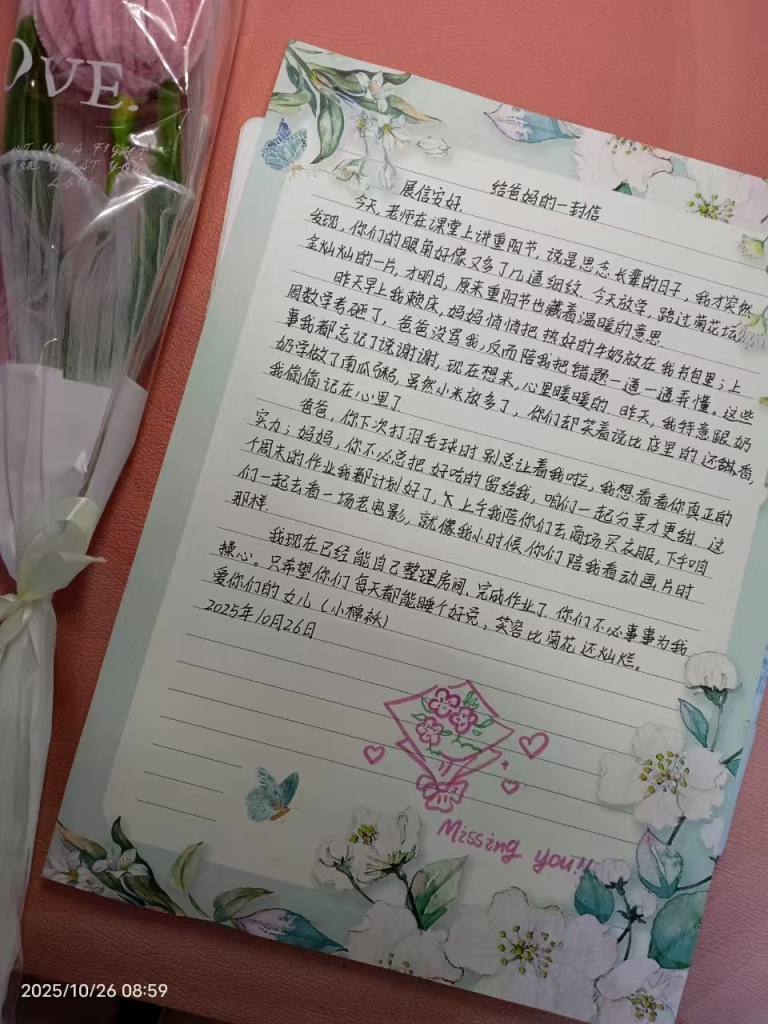 OVE.
给爸妈的一封信
展信安好
今天,老师在课堂上讲重阳节,说是思念长辈的日子,我才突然
发现,你们的眼角好像又多了几道细纹.今天放学,路过菊花坛
金灿灿的一片,才明白,原来重阳节也藏着温暖的意思.
昨天早上我赖床,妈妈悄悄把热好的牛奶放在我书包里;上
周数学考砸了,爸爸没骂我,反而陪我把错题一道一道弄懂。这些
事我都忘记了说谢谢,现在想来,心里暖暖的.昨天,我特意跟奶
奶学做了南瓜粥,虽然小米放多了,你们却笑着说比店里的还甜香,
我偷偷记在心里了
爸爸,你下次打羽毛球时别总让着我啦,我想看看你真正的
实力;妈妈,你不必总把好吃的留给我,咱们一起分享才更甜.这
个周末的作业我都计划好了,上午我陪你们去商场买衣服,下午咱
们一起去看一场老电影,就像我小时候你们陪我看动画片时
那样.
我现在已经能自己整理房间、完成作业了.你们不必事事为我
操心。只希望你们每天都能睡个好觉,笑容比菊花还灿烂。
爱你们的女儿(小棉袄)
2025年10月26日
Missing you!!
2025/10/26 08:59